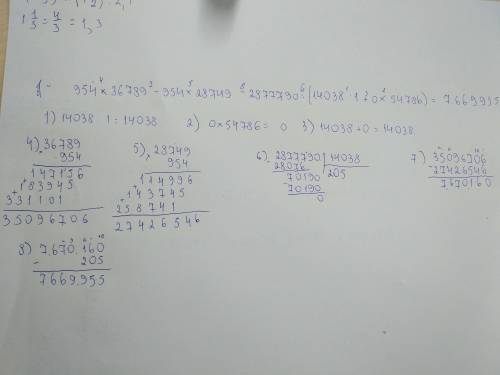 1 1/3 = 4/3 = 1,3
954 × 36789 - 954 × 28749 - 2877790 : (14038 : 1 + 0 × 54786) = 7.669955
1) 14038 : 1 = 14038 2) 0 × 54786 = 0 3) 14038 + 0 = 14038
4) 36789
× 954
147156
+ 183945
331101
35096706
5) 28749
× 954
114996
+ 143745
258741
27426546
6) 2877790 | 14038
28076 | 205
70190
70190
0
7) 35096706
- 27426546
7670160
8) 7.670.160
- 205
7669.955